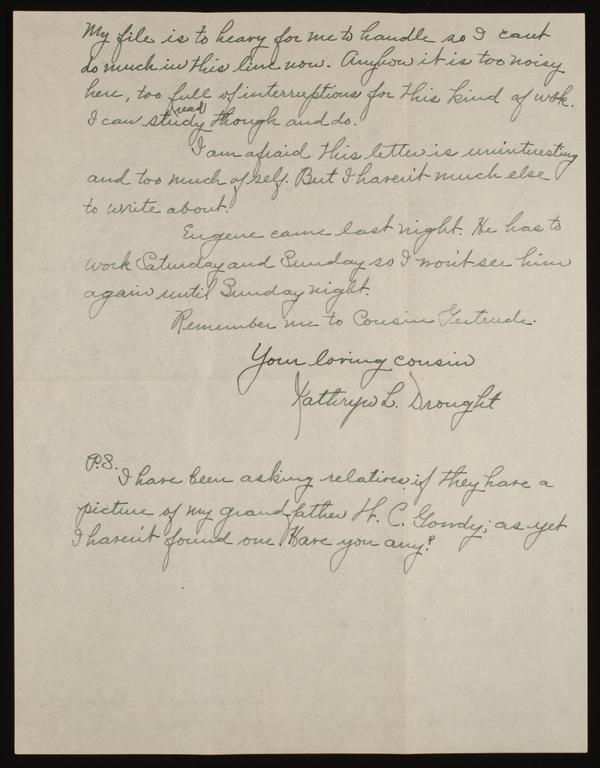 My file is to heavy for me to handle so I cant
do much in this line now. Anyhow it is too noisy
here, too full of interruptions for this kind of work.
read
I can study though and do.
I am afraid this letter is uninteresting
and too much of self. But I haven't much else
to write about.
Eugene came last night. He has to
work Saturday and Sunday so I won't see him
again until Sunday night.
Remember me to Cousin Gertrude.
Your loving cousin
Kathryn L. Drought
P.S.
I have been asking relatives if they have a
picture of my grandfather H. C. Gowdy; as yet
I haven't found one. Have you any?